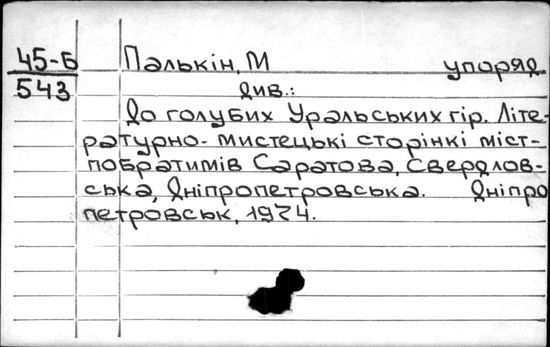 45-Б Палькін, М упоряд
543 див.:
До голубих Уральських гір. Літе-
ратурно-мистецькі сторінкі міст-
побратимів Саратова, Свердлов-
ська, Дніпропетровська. Дніпро
петровськ, 1974.